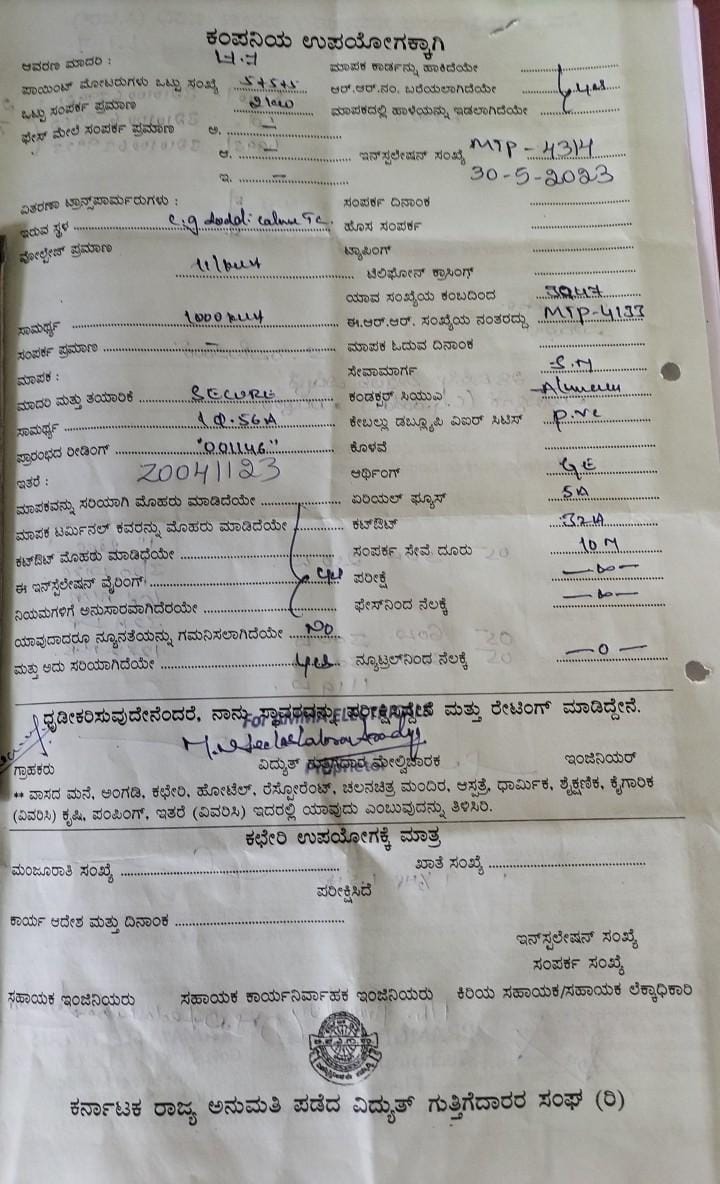 ಕಂಪನಿಯ ಉಪಯೋಗಕ್ಕಾಗಿ
ಆವರಣ ಮಾದರಿ : ಮಾಪಕ ಕಾರ್ಡನ್ನು ಹಾಕಿದೆಯೇ
ಪಾಯಿಂಟ್ ಮೋಟರುಗಳು ಒಟ್ಟು ಸಂಖ್ಯೆ 5+5+5 ಆರ್.ಆರ್.ನಂ. ಬರೆಯಲಾಗಿದೆಯೇ yes
ಒಟ್ಟು ಸಂಪರ್ಕ ಪ್ರಮಾಣ ಮಾಪಕದಲ್ಲಿ ಹಾಳೆಯನ್ನು ಇಡಲಾಗಿದೆಯೇ
ಫೇಸ್ ಮೇಲೆ ಸಂಪರ್ಕ ಪ್ರಮಾಣ ಅ. –
ಆ. – ಇನ್‌ಸ್ಟಲೇಷನ್ ಸಂಖ್ಯೆ MTP - 4314
ಇ. – 30-5-2023
ವಿತರಣಾ ಟ್ರಾನ್ಸ್‌ಪಾರ್ಮರುಗಳು : ಸಂಪರ್ಕ ದಿನಾಂಕ
ಇರುವ ಸ್ಥಳ ಹೊಸ ಸಂಪರ್ಕ
ವೋಲ್ಟೇಜ್ ಪ್ರಮಾಣ ಟ್ಯಾಪಿಂಗ್
ಟೆಲಿಫೋನ್ ಕ್ರಾಸಿಂಗ್
ಯಾವ ಸಂಖ್ಯೆಯ ಕಂಬದಿಂದ
ಸಾಮರ್ಥ್ಯ ಈ.ಆರ್.ಆರ್. ಸಂಖ್ಯೆಯ ನಂತರದ್ದು MTP-4133
ಸಂಪರ್ಕ ಪ್ರಮಾಣ – ಮಾಪಕ ಓದುವ ದಿನಾಂಕ
ಮಾಪಕ : ಸೇವಾಮಾರ್ಗ
ಮಾದರಿ ಮತ್ತು ತಯಾರಿಕೆ SECURE ಕಂಡಕ್ಟರ್ ಸಿಯುಎ
ಸಾಮರ್ಥ್ಯ ಕೇಬಲ್ಲು ಡಬ್ಲ್ಯೂಪಿ ಎಐರ್ ಸಿಟಿಸ್ P.vc
ಪ್ರಾರಂಭದ ರೀಡಿಂಗ್ "001146" ಕೊಳವೆ
ಇತರೆ : Z0041123 ಆರ್ಥಿಂಗ್
ಮಾಪಕವನ್ನು ಸರಿಯಾಗಿ ಮೊಹರು ಮಾಡಿದೆಯೇ ಏರಿಯಲ್ ಫ್ಯೂಸ್ 5A
ಮಾಪಕ ಟರ್ಮಿನಲ್ ಕವರನ್ನು ಮೊಹರು ಮಾಡಿದೆಯೇ ಕಟ್‌ಔಟ್ 32A
ಕಟ್‌ಔಟ್ ಮೊಹರು ಮಾಡಿಧೆಯೇ ಸಂಪರ್ಕ ಸೇವೆ ದೂರು 10 M
ಈ ಇನ್‌ಸ್ಟಲೇಷನ್ ವೈರಿಂಗ್ yes ಪರೀಕ್ಷೆ
ನಿಯಮಗಳಿಗೆ ಅನುಸಾರವಾಗಿದೆರಯೇ ಫೇಸ್‌ನಿಂದ ನೆಲಕ್ಕೆ
ಯಾವುದಾದರೂ ನ್ಯೂನತೆಯನ್ನು ಗಮನಿಸಲಾಗಿದೆಯೇ No
ಮತ್ತು ಅದು ಸರಿಯಾಗಿದೆಯೇ yes ನ್ಯೂಟ್ರಲ್‌ನಿಂದ ನೆಲಕ್ಕೆ — 0 —
ಧೃಡೀಕರಿಸುವುದೇನೆಂದರೆ, ನಾನು ಸ್ಥಾವರವನ್ನು ಪರೀಕ್ಷಿಸಿದ್ದೇನೆ ಮತ್ತು ರೇಟಿಂಗ್ ಮಾಡಿದ್ದೇನೆ.
ಗ್ರಾಹಕರು ವಿದ್ಯುತ್ ಗುತ್ತಿಗೆದಾರ ಮೇಲ್ವಿಚಾರಕ ಇಂಜಿನಿಯರ್
** ವಾಸದ ಮನೆ, ಅಂಗಡಿ, ಕಛೇರಿ, ಹೋಟೆಲ್, ರೆಸ್ಟೋರೆಂಟ್, ಚಲನಚಿತ್ರ ಮಂದಿರ, ಆಸ್ಪತ್ರೆ, ಧಾರ್ಮಿಕ, ಶೈಕ್ಷಣಿಕ, ಕೈಗಾರಿಕ
(ವಿವರಿಸಿ) ಕೃಷಿ, ಪಂಪಿಂಗ್, ಇತರೆ (ವಿವರಿಸಿ) ಇದರಲ್ಲಿ ಯಾವುದು ಎಂಬುವುದನ್ನು ತಿಳಿಸಿರಿ.
ಕಛೇರಿ ಉಪಯೋಗಕ್ಕೆ ಮಾತ್ರ
ಮಂಜೂರಾತಿ ಸಂಖ್ಯೆ ಖಾತೆ ಸಂಖ್ಯೆ
ಪರೀಕ್ಷಿಸಿದೆ
ಕಾರ್ಯ ಆದೇಶ ಮತ್ತು ದಿನಾಂಕ
ಇನ್‌ಸ್ಟಲೇಷನ್ ಸಂಖ್ಯೆ
ಸಂಪರ್ಕ ಸಂಖ್ಯೆ
ಸಹಾಯಕ ಇಂಜಿನಿಯರು ಸಹಾಯಕ ಕಾರ್ಯನಿರ್ವಾಹಕ ಇಂಜಿನಿಯರು ಕಿರಿಯ ಸಹಾಯಕ/ಸಹಾಯಕ ಲೆಕ್ಕಾಧಿಕಾರಿ
ಕರ್ನಾಟಕ ರಾಜ್ಯ ಅನುಮತಿ ಪಡೆದ ವಿದ್ಯುತ್ ಗುತ್ತಿಗೆದಾರರ ಸಂಘ (ರಿ)